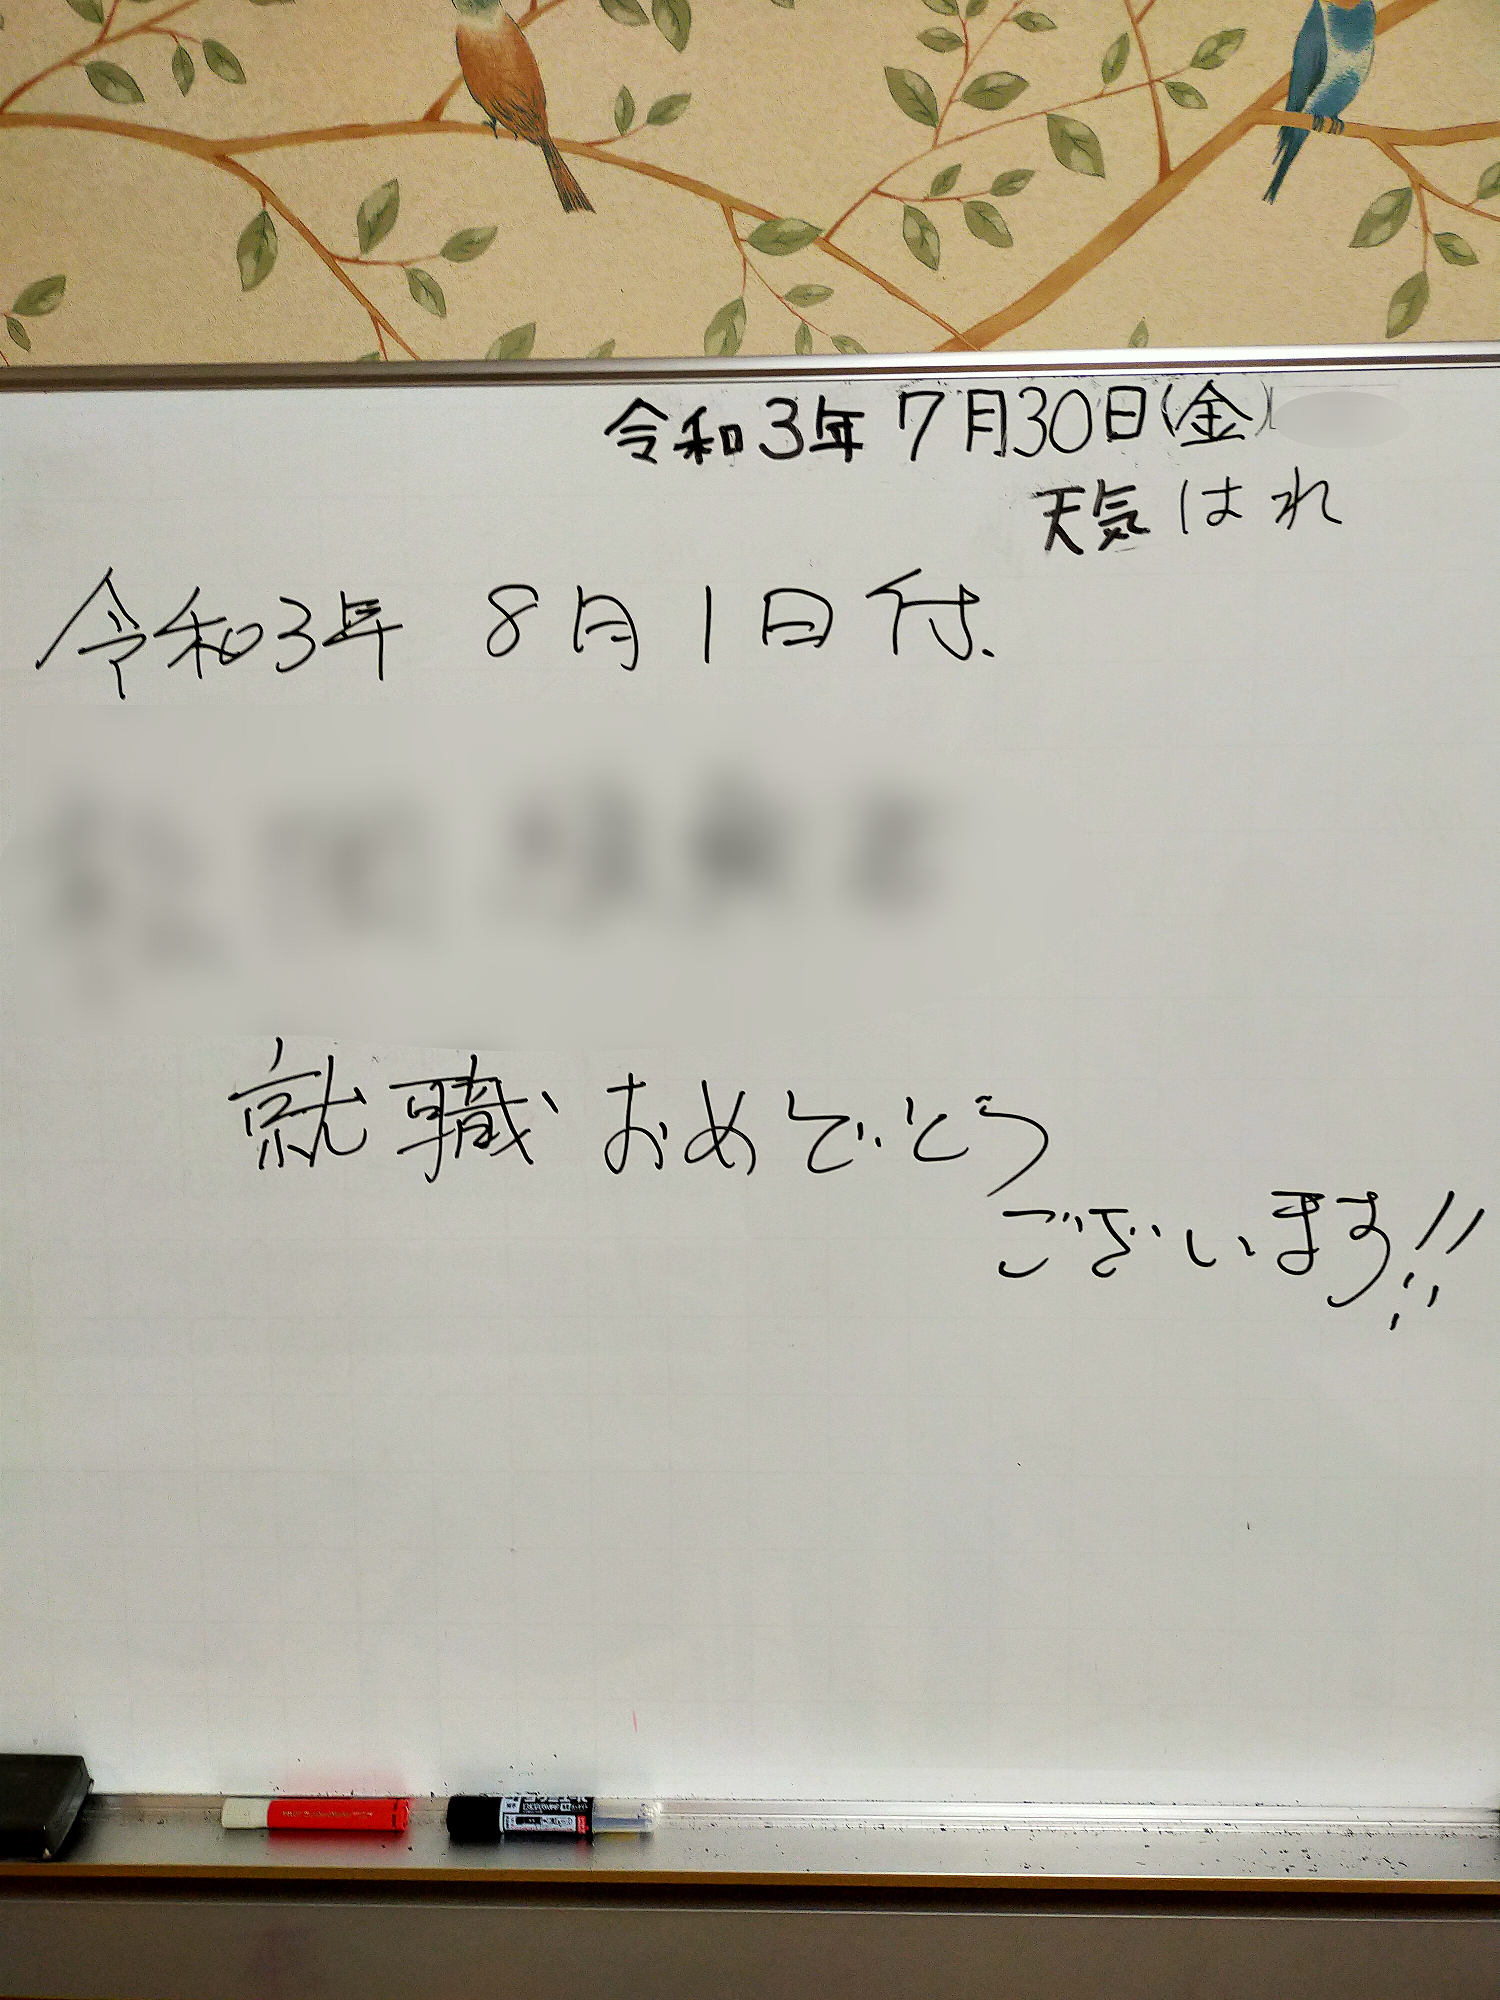 令和3年 7月30日(金)
天気 はれ
令和3年 8月1日付.
就職おめでとう
ございます!!